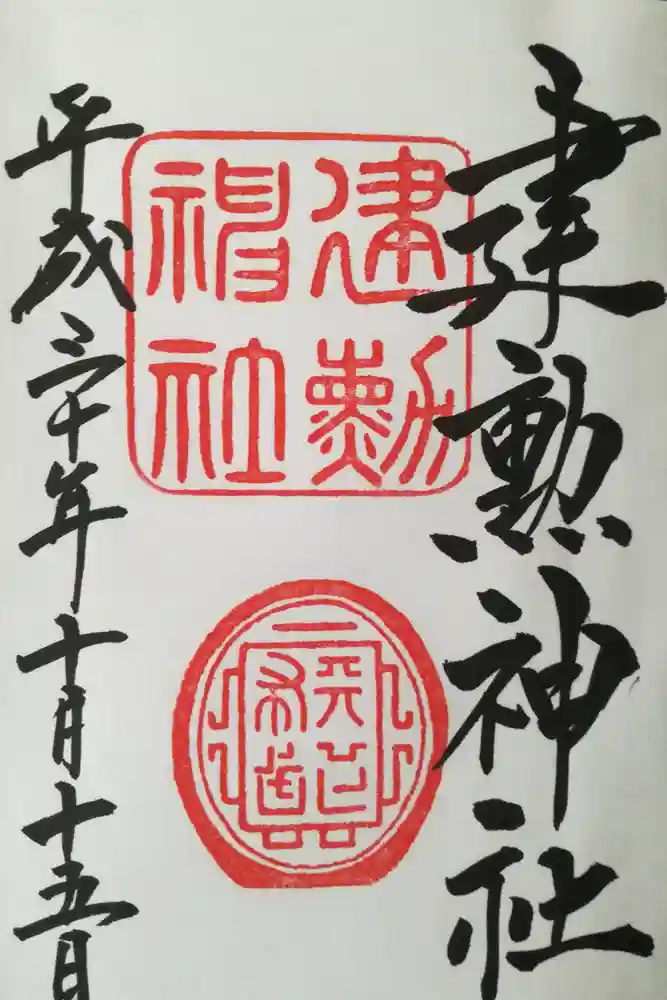 建勲神社
建勲
神社
天下布武
平成三十年十月十五日